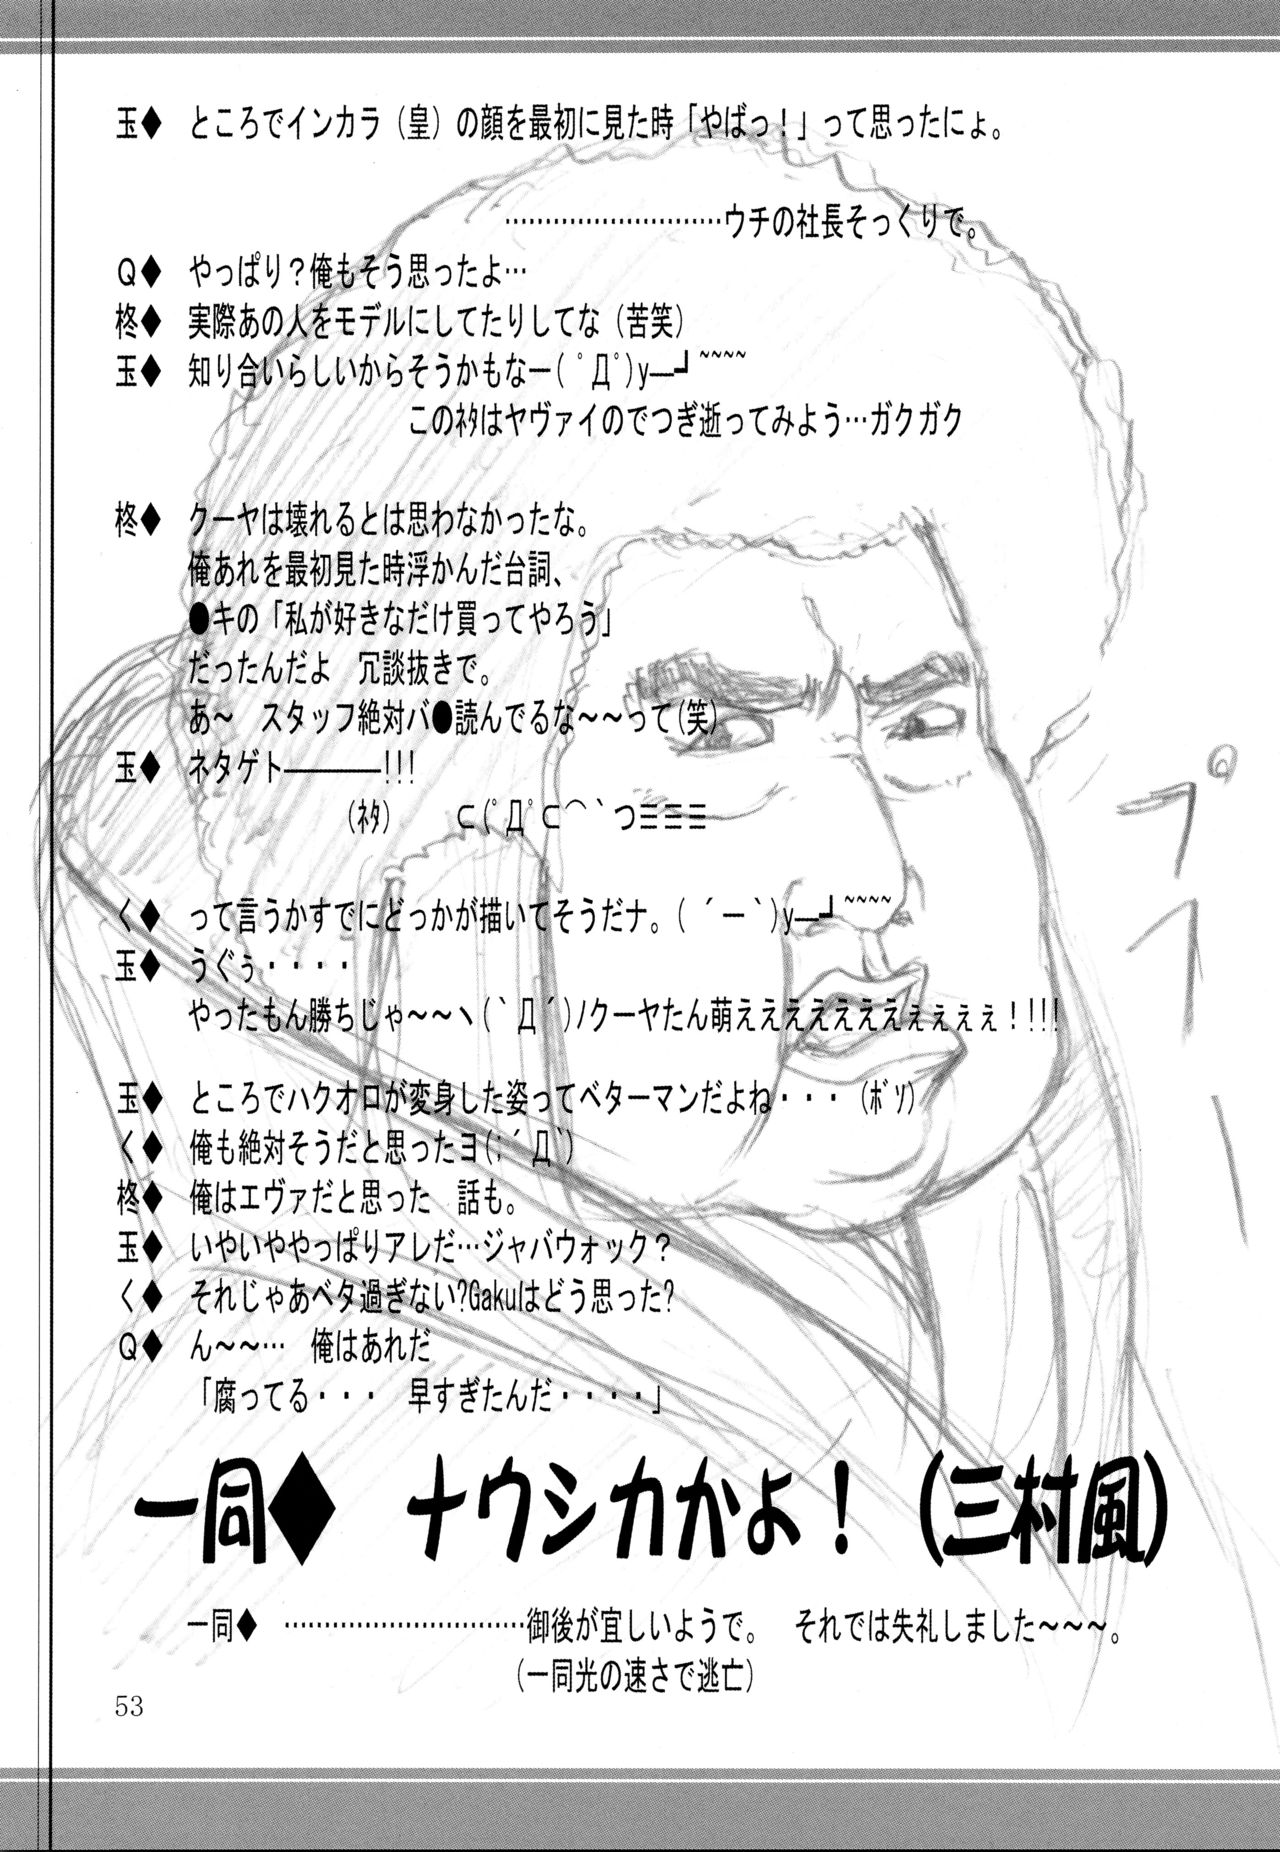 玉◆　ところでインカラ（皇）の顔を最初に見た時「やばっ！」って思ったにょ。
…………………………ウチの社長そっくりで。
Ｑ◆　やっぱり？俺もそう思ったよ…
柊◆　実際あの人をモデルにしてたりしてな（苦笑）
玉◆　知り合いらしいからそうかもなー( ﾟДﾟ)y―┛~~~~
このﾈﾀはヤヴァイのでつぎ逝ってみよう…ガクガク
柊◆　クーヤは壊れるとは思わなかったな。
俺あれを最初見た時浮かんだ台詞、
●キの「私が好きなだけ買ってやろう」
だったんだよ　冗談抜きで。
あ～　スタッフ絶対バ●読んでるな～～って(笑)
玉◆　ネタゲト――――!!!
(ﾈﾀ)　　⊂(ﾟДﾟ⊂⌒｀つ≡≡≡
く◆　って言うかすでにどっかが描いてそうだナ。( ´ー`)y―┛~~~~
玉◆　うぐぅ・・・・
やったもん勝ちじゃ～～ヽ(`Д´)ノクーヤたん萌えええええええぇぇぇぇ！!!!
玉◆　ところでハクオロが変身した姿ってベターマンだよね・・・（ﾎﾞｿ）
く◆　俺も絶対そうだと思ったヨ(;´Д`)
柊◆　俺はエヴァだと思った　話も。
玉◆　いやいややっぱりアレだ…ジャバウォック？
く◆　それじゃあベタ過ぎない?Gakuはどう思った?
Ｑ◆　ん～～…　俺はあれだ
「腐ってる・・・　早すぎたんだ・・・・」
一同◆　ナウシカかよ！（三村風）
一同◆　…………………………御後が宜しいようで。　それでは失礼しました～～～。
（一同光の速さで逃亡）
プ
ア
ー
53